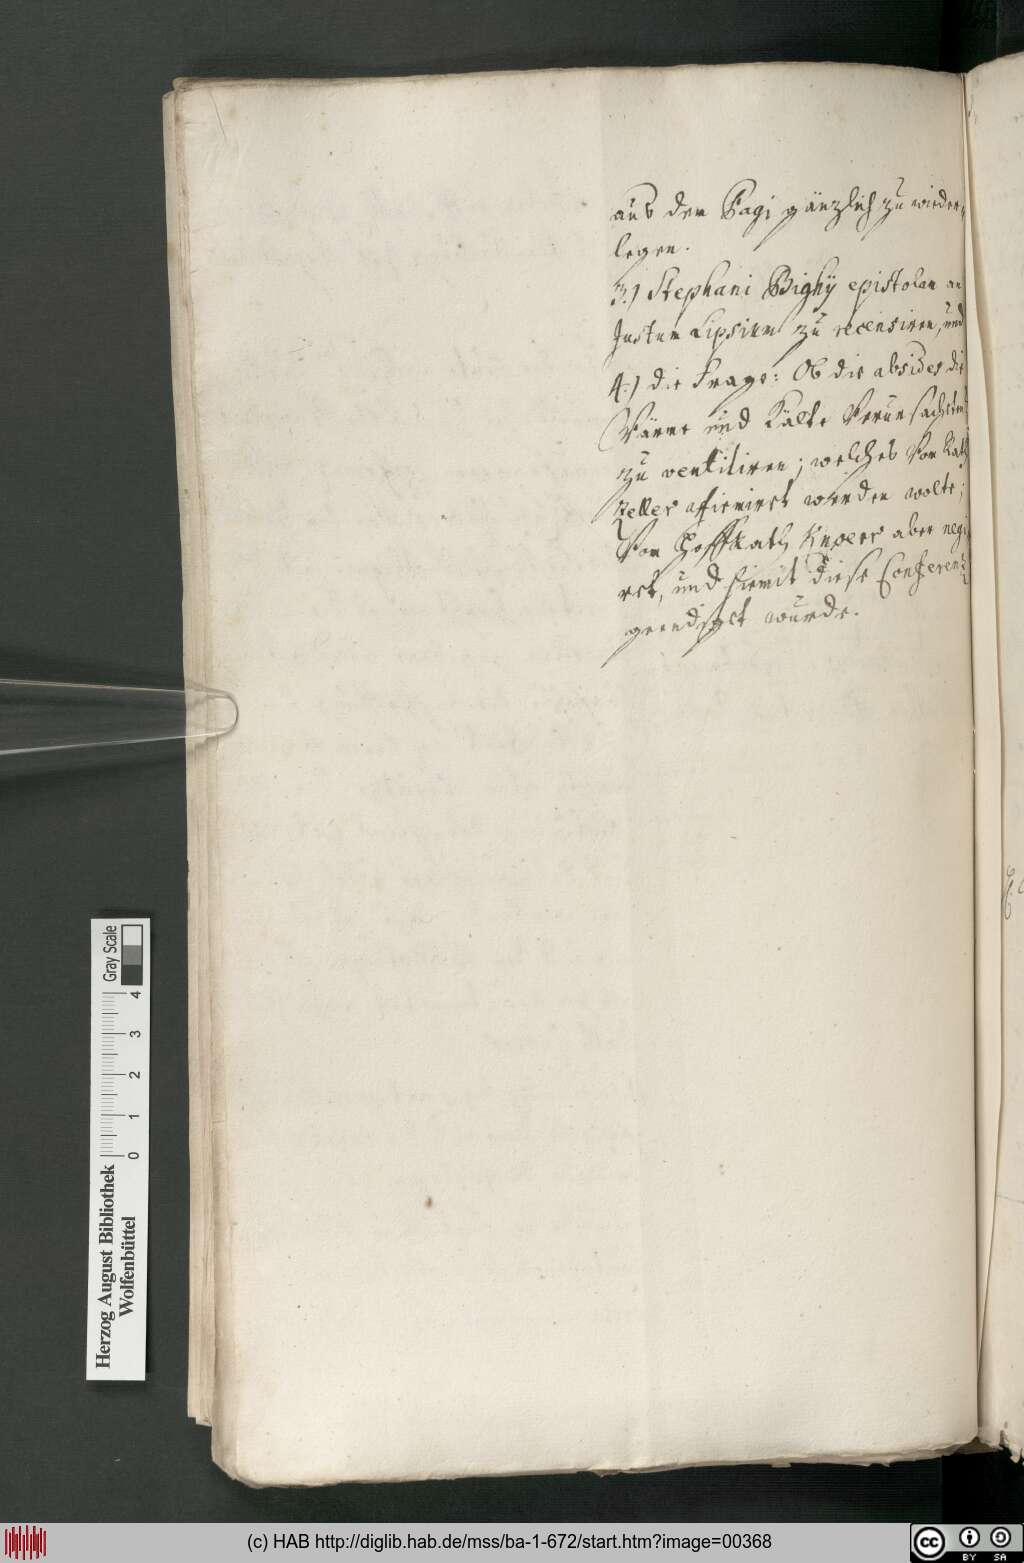 aus dem Pagi gänzlich zu wieder-
legen.
3.) Stephani Pighij epistolam an
Justum Lipsium zu recensiren, und
4.) die Frage: Ob die absides die
Wärme und Kälte verursachten
zu ventiliren; welches von Rath
Zeller affirmirt werden wolte;
Von HoffRath Knoerr aber negi
ret, und hiemit diese Conferenz
geendiget wurde.
Herzog August Bibliothek
Wolfenbüttel
0 1 2 3 4
Gray Scale
(c) HAB http://diglib.hab.de/mss/ba-1-672/start.htm?image=00368
cc BY SA